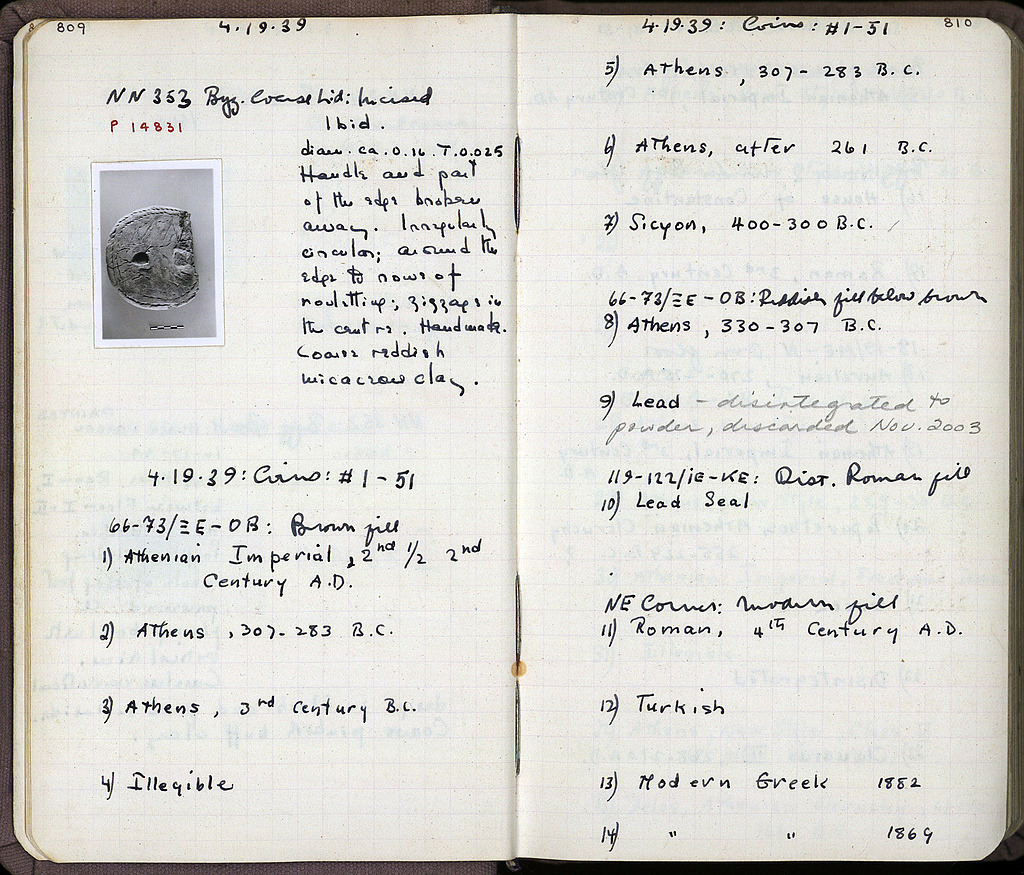 809
4.19.39
NN 353 Byz. Coarse Lid: Incised
P 14831
Ibid.
diam. ca. 0.16. T. 0.025
Handle and part
of the edge broken
away. Irregularly
circular; around the
edge rows of
rouletting; zigzags in
the centre. Handmade.
Coarse reddish
micaceous clay.
4.19.39: Coins: #1-51
66-73/ΞE-OB: Brown fill
1) Athenian Imperial, 2nd 1/2 2nd
Century A.D.
2) Athens, 307-283 B.C.
3) Athens, 3rd Century B.C.
4) Illegible
810
4.19.39: Coins: #1-51
5) Athens, 307-283 B.C.
6) Athens, after 261 B.C.
7) Sicyon, 400-300 B.C.
66-73/ΞE-OB: Reddish fill below brown
8) Athens, 330-307 B.C.
9) Lead - disintegrated to
powder, discarded Nov. 2003
119-122/ΙE-KE: Dist. Roman fill
10) Lead Seal
NE Corner: modern fill
11) Roman, 4th Century A.D.
12) Turkish
13) Modern Greek 1882
14) " " 1869